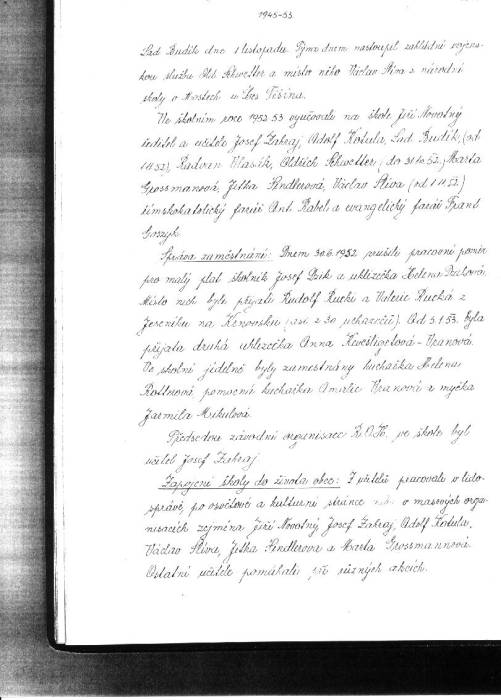 1945-53
Lad. Budík dne 1 listopadu. Týmž dnem nastoupil základní vojens-
kou službu Old. Schwetter a místo něho Václav Slíva z národní
školy v Mostech u Čes Těšína.
Ve školním roce 1952 53 vyučovali na škole Jiří Novotný
ředitel a učitelé Josef Zahraj, Adolf Kotula, Lad. Budík, (od
1 11 52), Radvan Vlasík, Oldřich Schwetter, (do 31 10 52,) Marta
Grossmanová, Jitka Šindlerová, Václav Slíva (od 1 11 52)
římskokatolický farář Ant. Rabel a evangelický farář Frant
Správa zaměstnání: Dnem 30 6 1952 zrušili pracovní poměr
pro malý plat školník Josef Dzik a uklizečka Helena
Místo nich byli přijati Rudolf Rucki a Valerie Rucká z
Javorníku na Krnovsku (asi z 30 uchazečů). Od 5 1 53. byla
přijata druhá uklizečka Anna Vranová.
Ve školní jídelně byly zaměstnány kuchařka Helena
Rottrová pomocná kuchařka Amalie Vranová a myčka
Jarmila Mikulová.
Předsedou závodní organisace R.O.H. ve škole byl
učitel Josef Zahraj
Zapojení školy do života obce: I učitelé pracovali v lido-
správě, po osvětové a kulturní stránce v masových orga-
nisacích, zejména Jiří Novotný Josef Zahraj, Adolf Kotula,
Václav Slíva, Jitka Šindlerova a Marta Grossmannová.
Ostatní učitelé pomáhali při různých akcích.